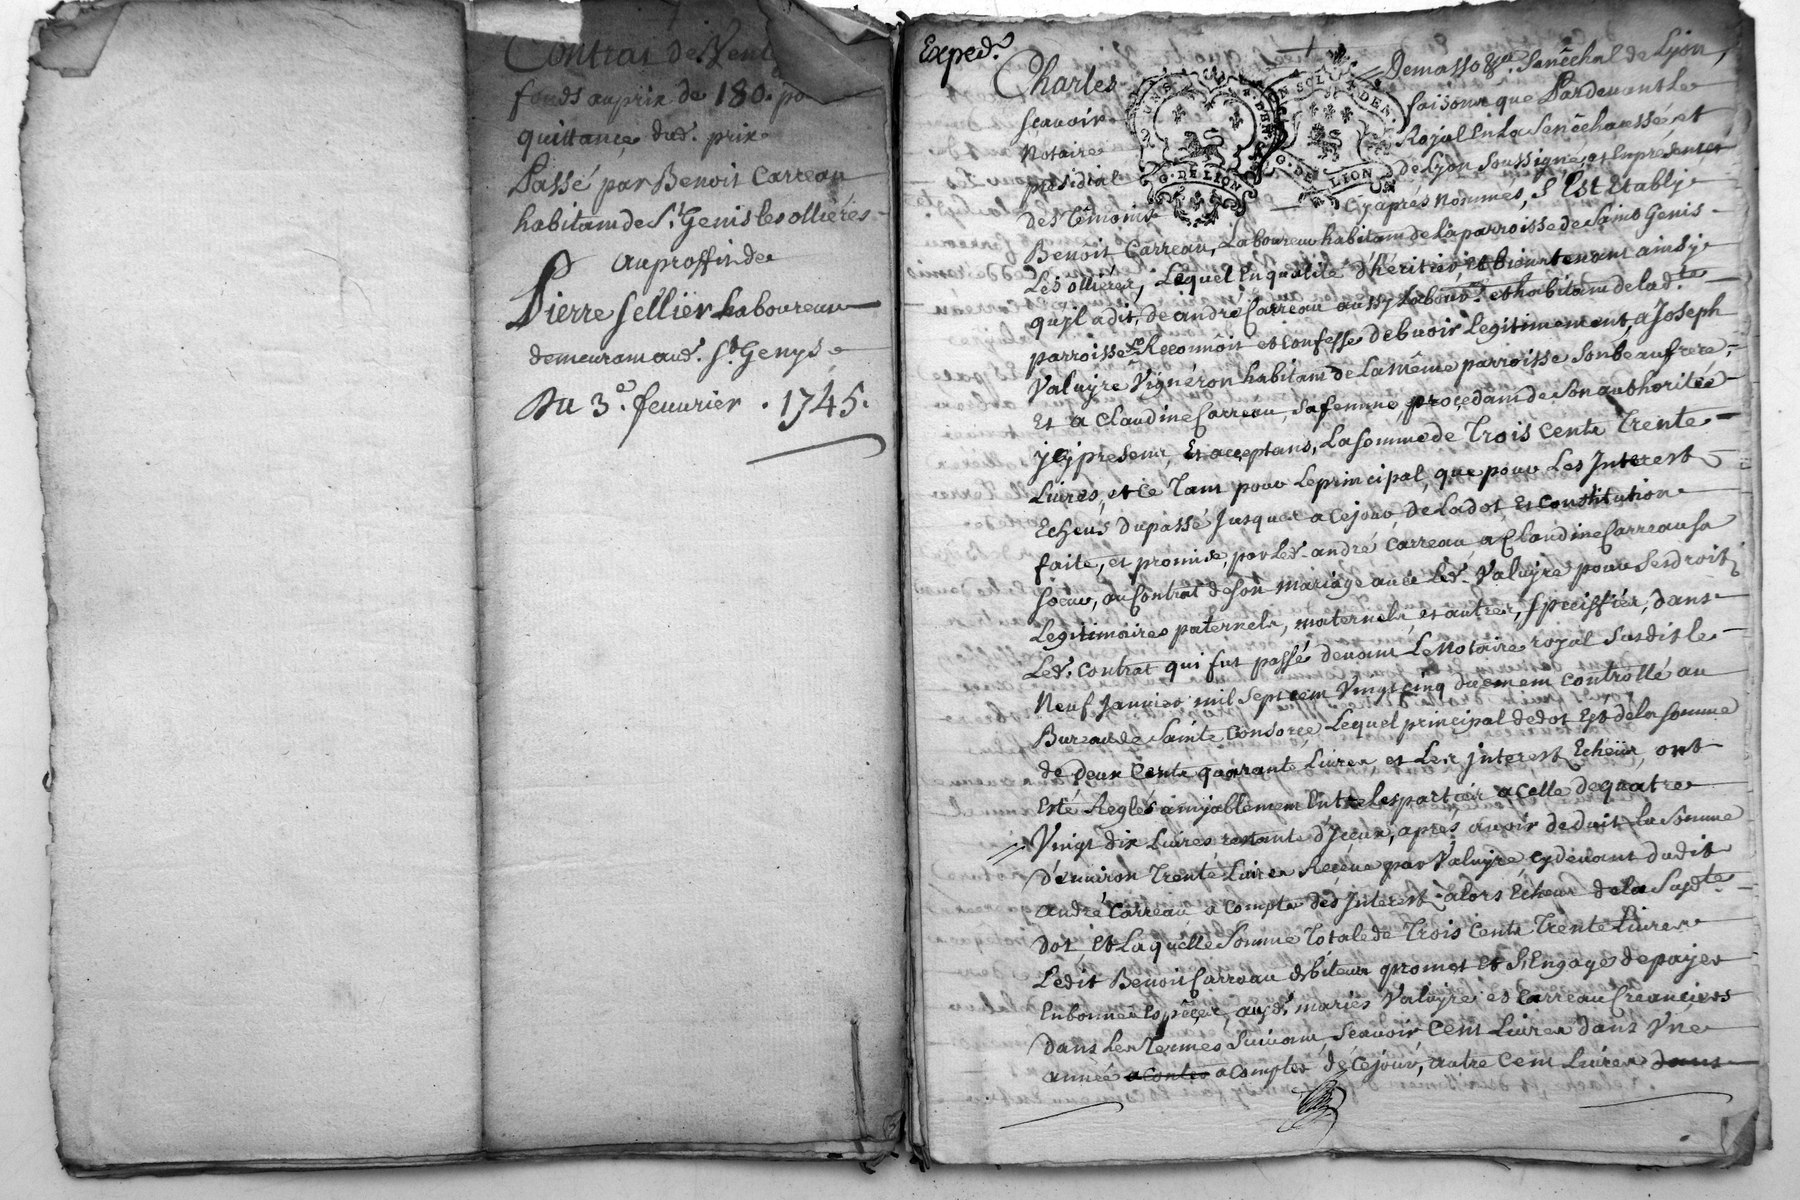 Contrat de Vente
fonds au prix de 180. po
quittance dud. prix
Passé par Benoit Carreau
habitant de St. Genis les ollières
au proffit de
Pierre sellier Laboureau
demeurant aud. St. Genys
Du 3e. feuurier . 1745.
Exped.
Charles Demasso Senêchal de Lyon,
scauoir faisons que Pardeuant Le
Notaire Royal En La Senêchaussé, et
presidial de Lyon soussigné, et En presence
des Témoins Cy aprés Nommés, S'Est Etably
Benoit Carreau, Laboureur habitant de la parroisse de Saint Genis
Les ollières, Lequel En qualité d'héritier et bientenant ainsy
qu'jl a dit, de andré Carreau aussy Labour. et habitant de lad.te
parroisse Reconnoit et Confesse debuoir legitimement, a Joseph
Valuyre Vignéron habitant de la même parroisse son beaufrere,
Et a Claudine Carreau, sa femme, procedant de son authoritée
jcy present, Et acceptans, La somme de Trois Cents Trente
Liures, et ce Tant pour Le principal, que pour Les Interest
Echeus du passé jusques a ce jour, de La dot, Et Constitution
faite, et promise, par Led. andré Carreau, a Claudine Carreau sa
soeur, au Contrat de son mariage auec Led. Valuyre pour ses droits
Legitimaires paternels, maternels, et autres, specissiés, dans
Led. Contrat qui fut passé deuant Le Notaire royal susdit le
Neuf Januier mil sept cent Vingt cinq duement controllé au
Bureau de Sainte Consorce Lequel principal de dot Est de la somme
de Deux Cents quarante Liures, et Les jnterest Echeüs, ont
Esté Reglés amjablement Entre les parties a Celle de quatre
Vingt dix Liures restante d'jceux, aprés, auoir deduit la somme
d'enuiron Trente Liures Reçeüe par Valuyre cy deuant dudit
andré Carreau a compte des Jnterest alors Echeus de la Susd.te
Dot, Et Laquelle Somme Totale de Trois Cents Trente Liures
Ledit Benoit Carreau debiteur promet Et S'Engage de payer
En bonnes Espèces, ausd. mariés Valuyre et Carreau Creanciers
dans Les Termes Suiuant, Scauoir Cent Liures dans Vne
année a Compter de ce jour, autre Cent Liures dans
G. DE LION
G. DE LION